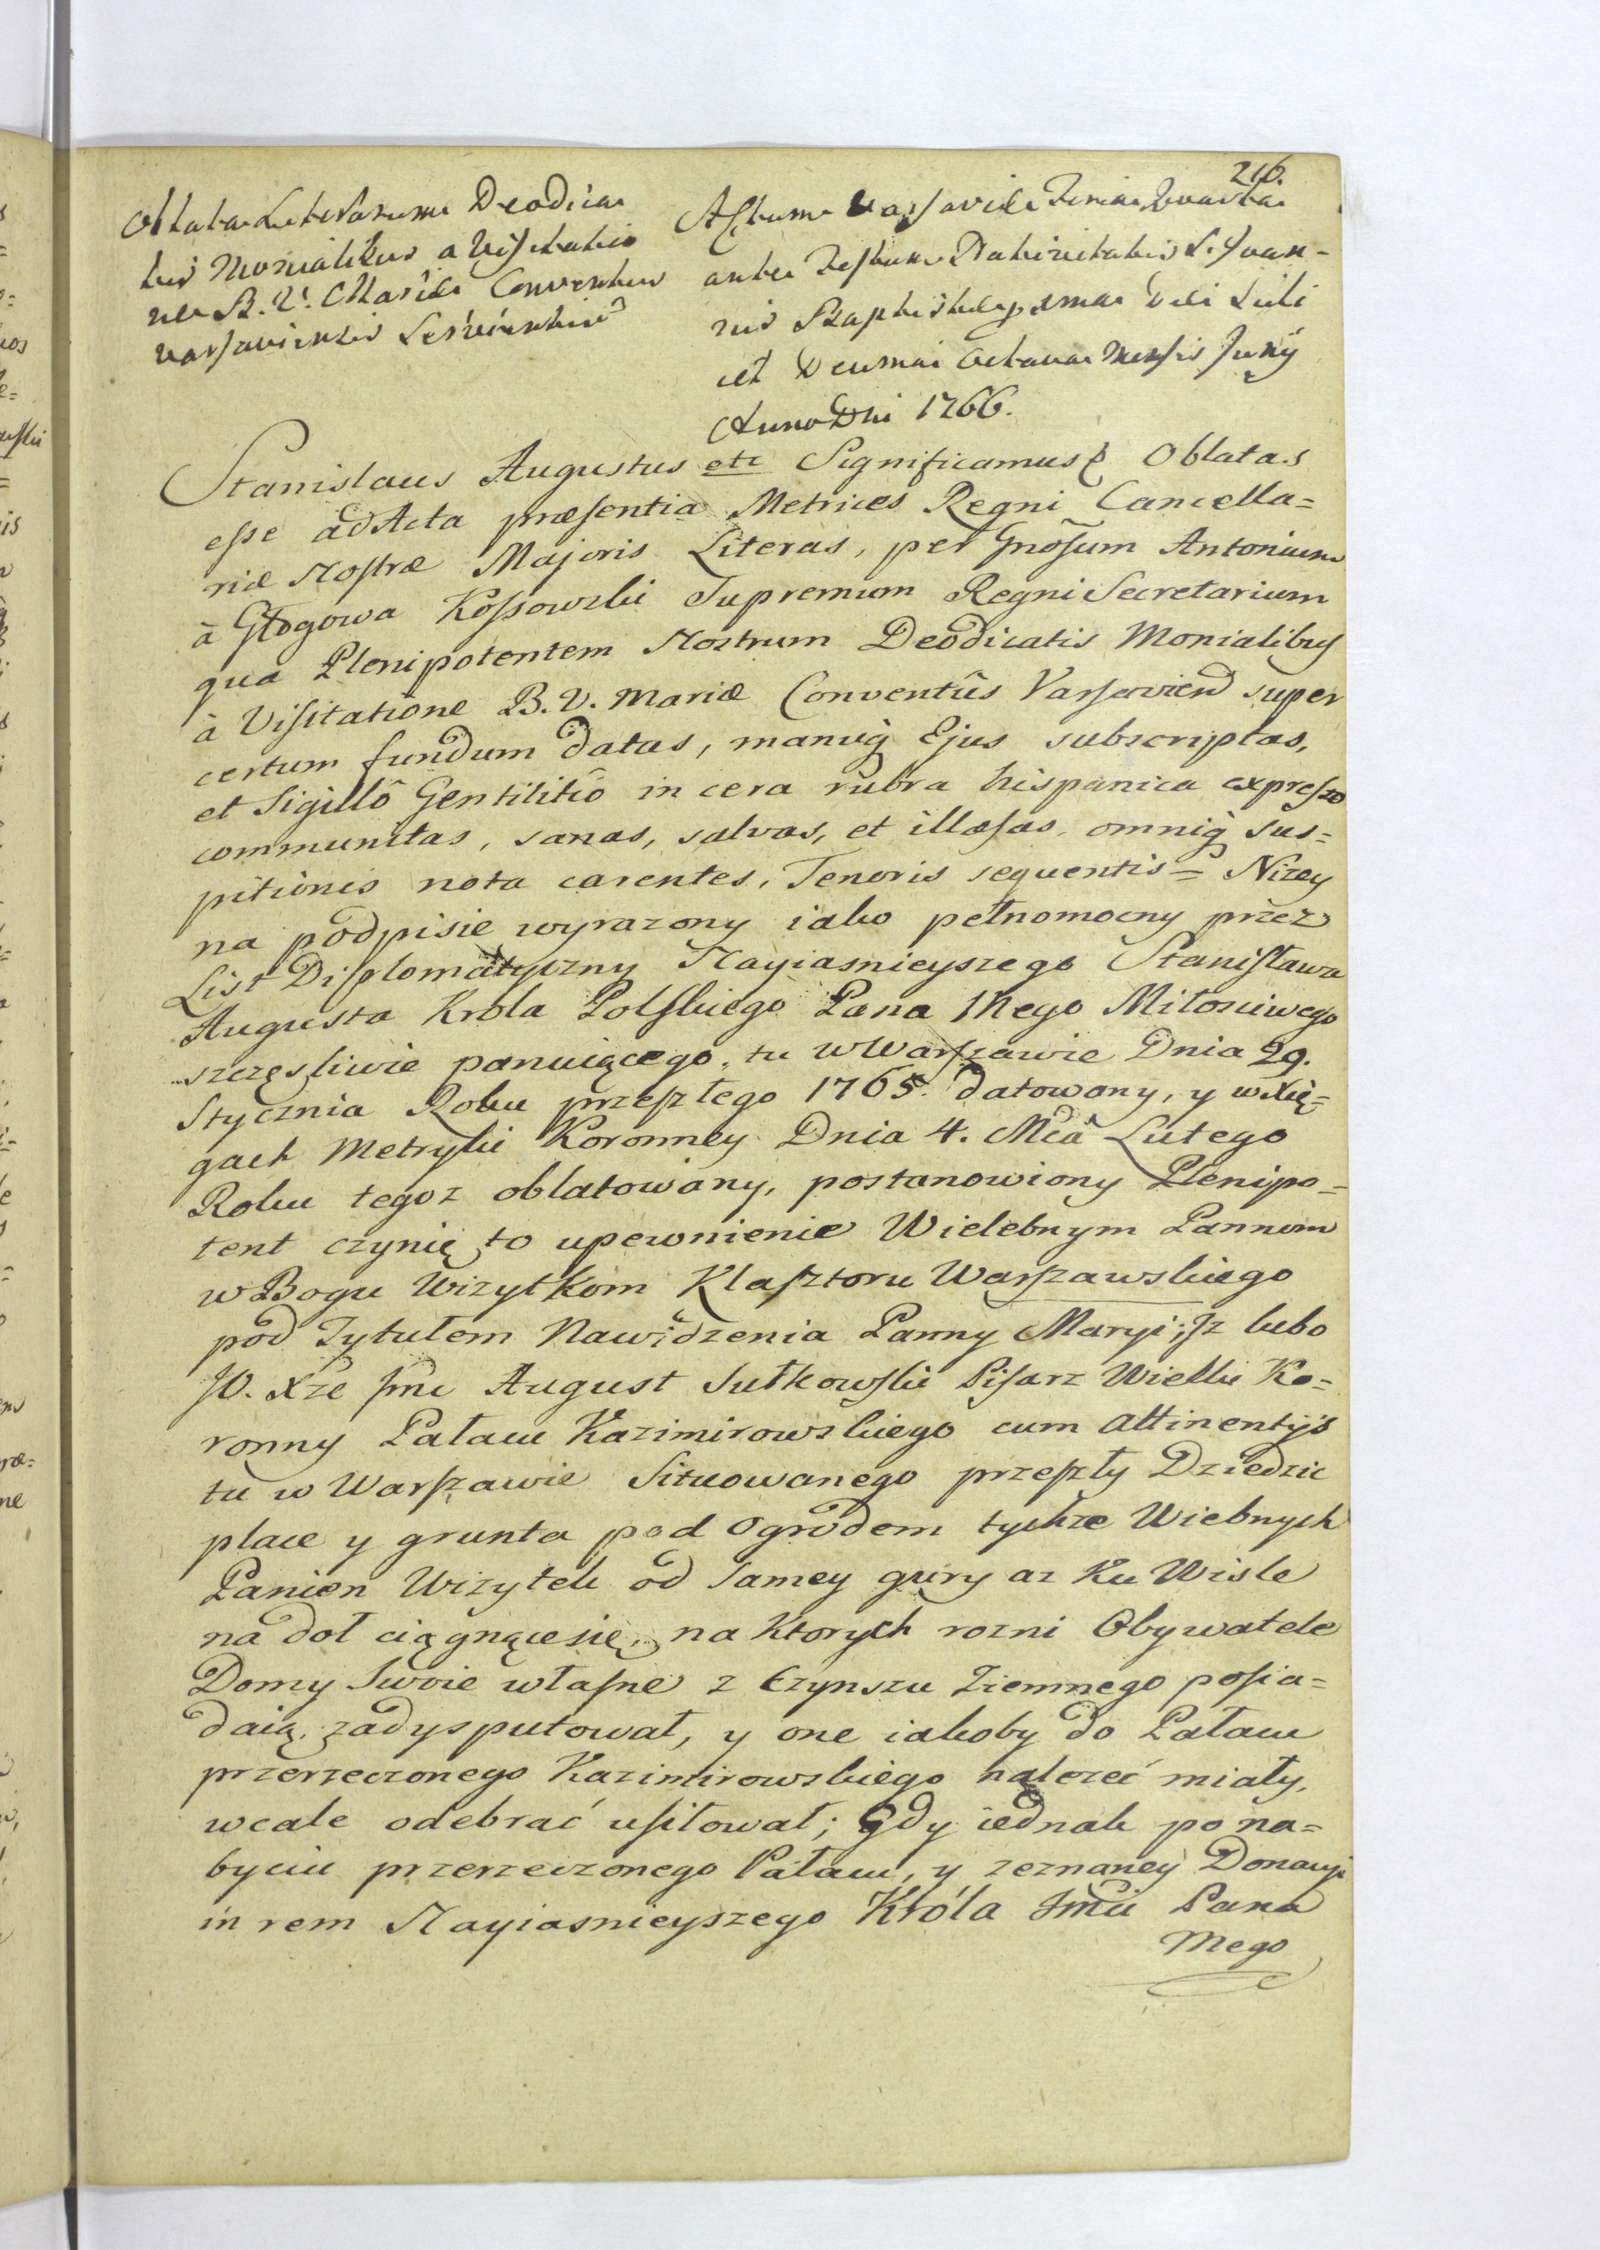 216.
Oblata Literarum Deodica
tis Monialibus a Visitatio
ne B. V. Mariæ Conventus
Varsaviensis Servientium
Actum Varsaviæ Feria Quarta
ante Festum Nativitatis S. Joan-
nis Baptistæ proxima Die Scili
cet Decima Octava Mensis Junÿ
Anno Dni 1766.
Stanislaus Augustus etc Significamus Oblatas
esse ad Acta præsentia Metrices Regni Cancella=
riæ Nostræ Majoris Literas, per Gnosum Antonium
à Głogowa Kossowski Supremum Regni Secretarium
qua Plenipotentem Nostrum Deodicatis Monialibus
à Visitatione B. V. Mariæ Conventûs Varsavien super
certum fundum datas, manuq Ejus subscriptas,
et Sigillô Gentilitiô in cera rubra hispanica expresso
communitas, sanas, salvas, et illæsas, omniq sus=
pitionis nota carentes, Tenoris sequentis = Nizey
na podpisie wyrazony iako pełnomocny przez
List Diplomatyczny Nayiasnieyszego Stanisława
Augusta Krola Polskiego Pana Mego Miłosciwego
szczęsliwie panuiącego, tu w Warszawie Dnia 29.
Stycznia Roku przeszłego 1765. datowany, y w Xię=
gach Metryki Koronney Dnia 4. Mca Lutego
Roku tegoz oblatowany, postanowiony Plenipo=
tent czynię to upewnienie Wielebnym Pannom
w Bogu Wizytkom Klasztoru Warszawskiego
pod Tytułem Nawidzenia Panny Maryi; Jz lubo
JO. Xze Jmc August Sułkowski Pisarz Wielki Ko=
ronny Pałacu Kazimirowskiego cum Attinentÿs
tu w Warszawie Situowanego przeszły Dziedzic
place y grunta pod Ogrodem tychze Wiebnych
Panien Wizytek od samey gury az ku Wisle
na doł ciągnącesię, na ktorych rozni Obywatele
Domy Swoie własne z Czynszu Ziemnego posia=
daią, zadysputował, y one iakoby do Pałacu
przerzeczonego Kazimirowskiego nalezeć miały,
wcale odebrać usiłował; Gdy iednak po na=
byciu przerzeczonego Pałacu, y zeznaney Donacyi
in rem Nayiasnieyszego Króla Jmci Pana
Mego